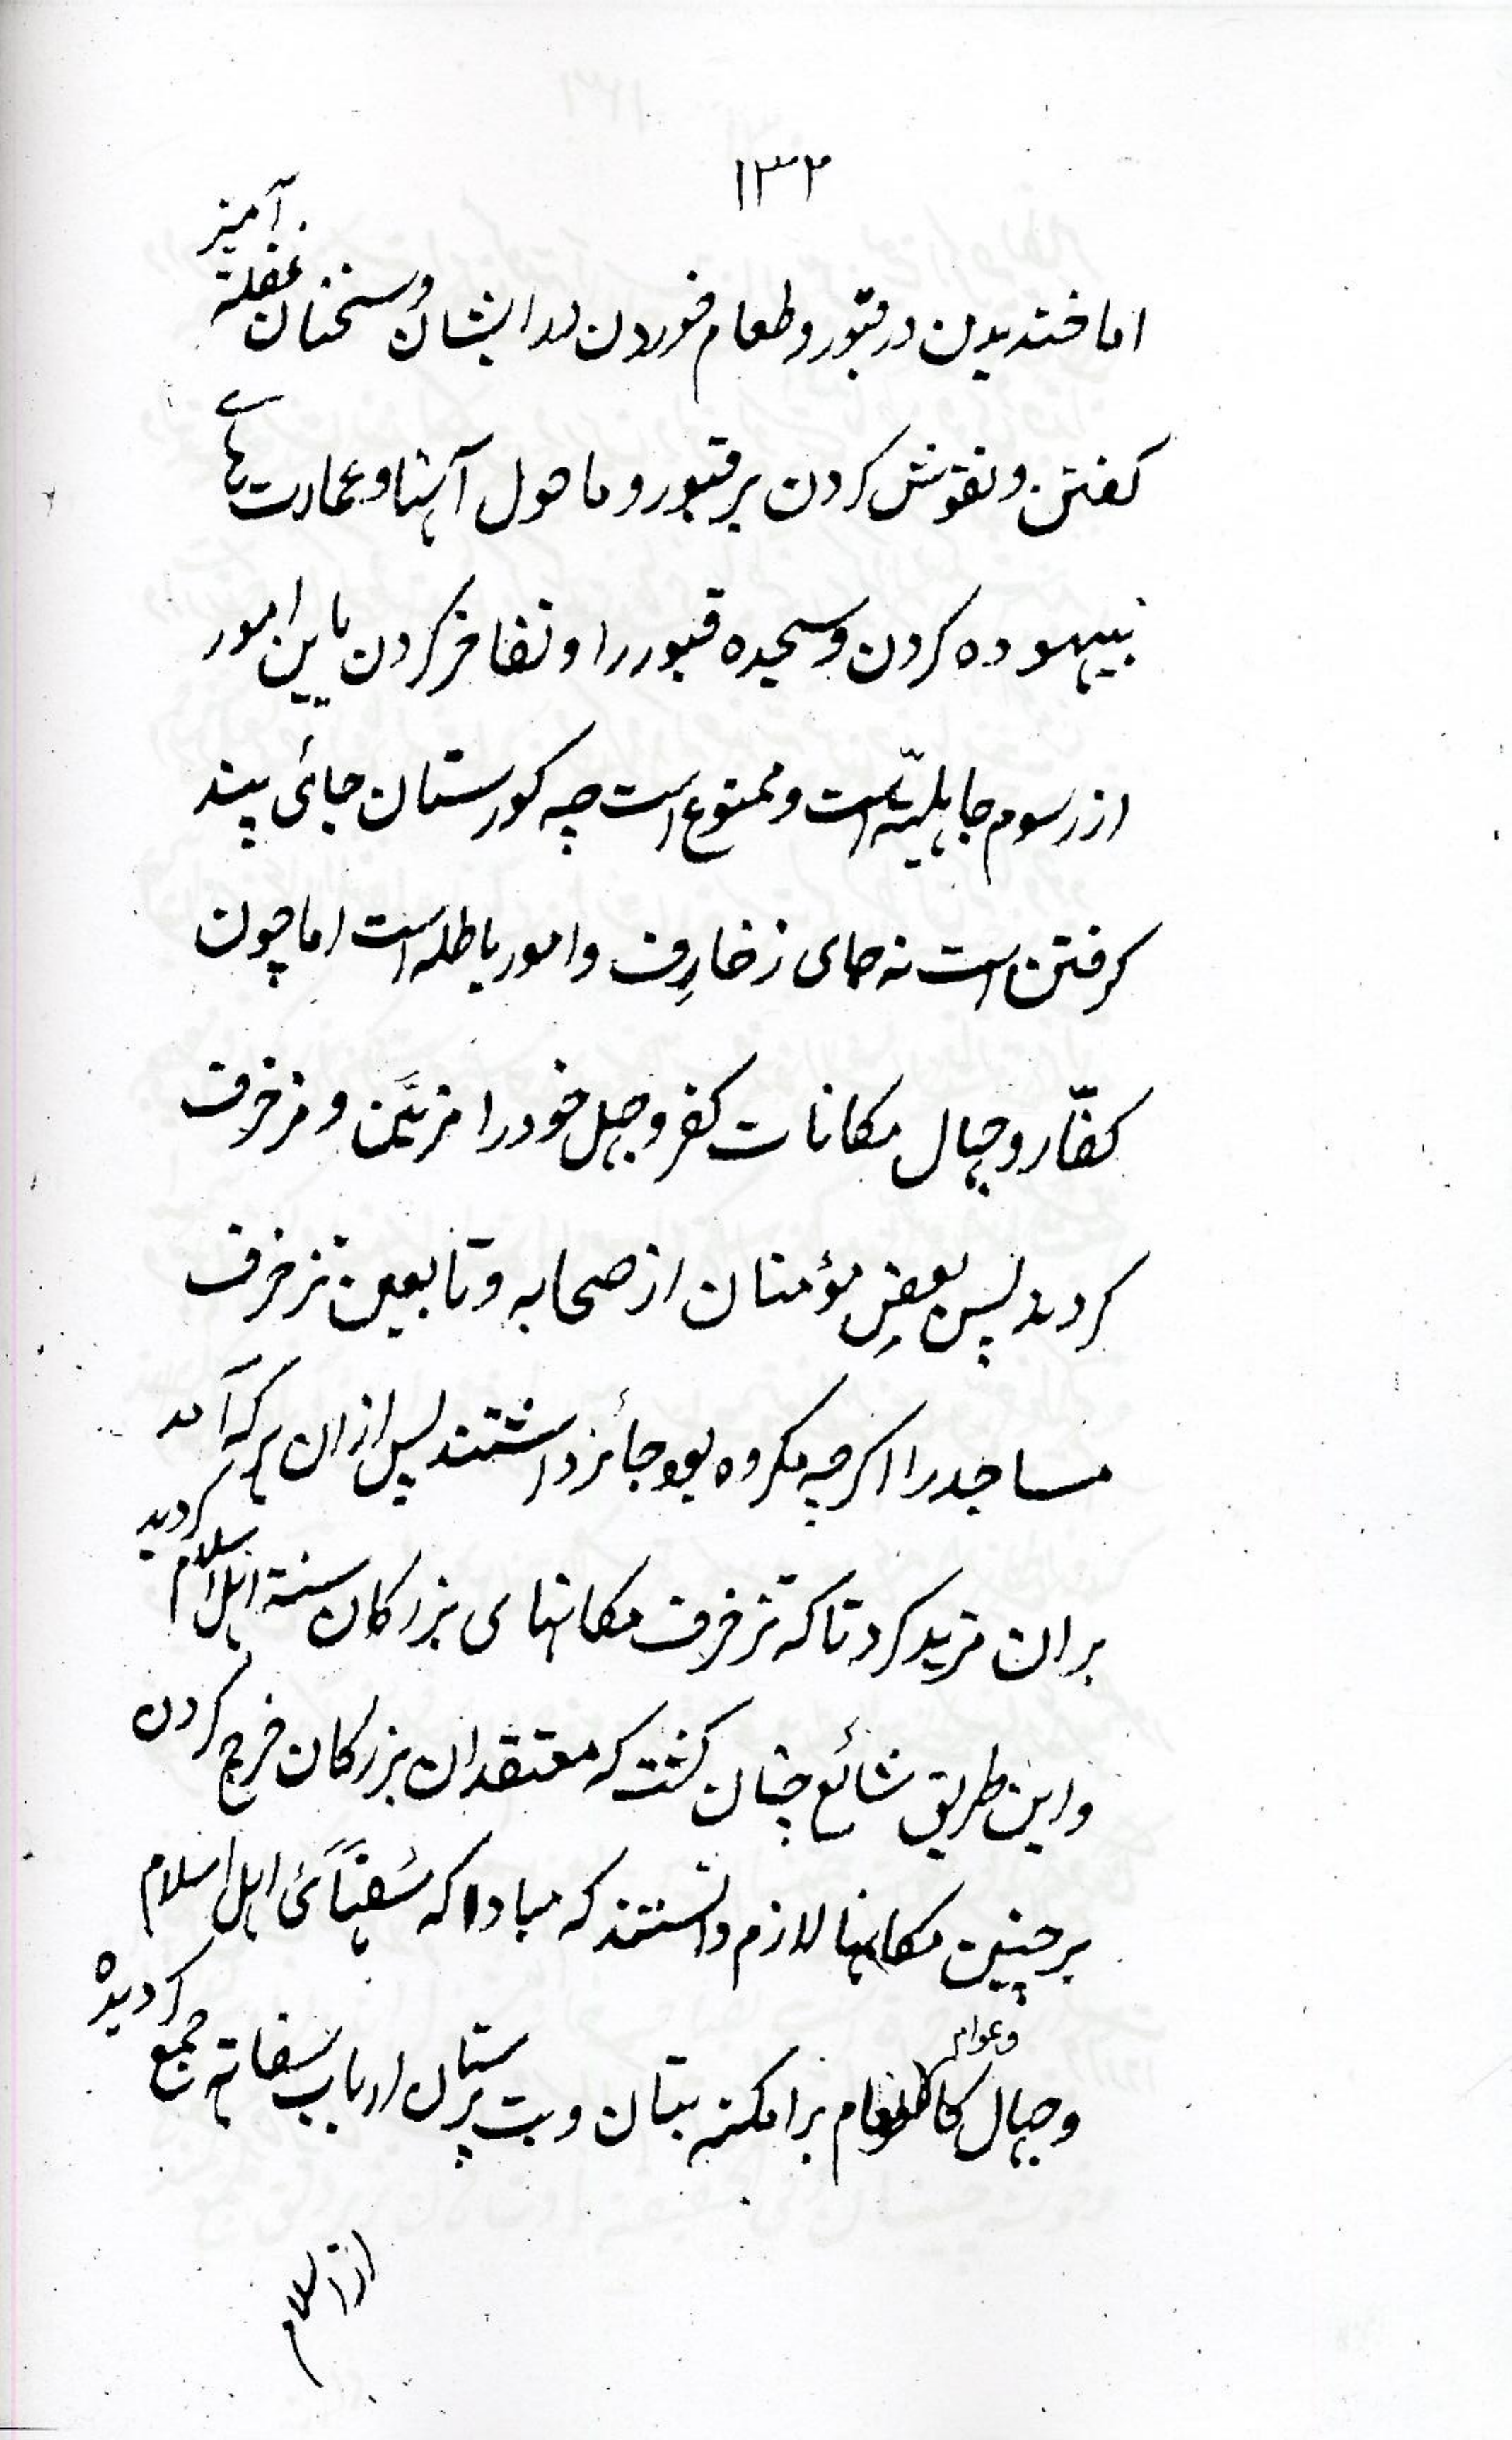 ۱۳۲
اما خندیدن در قبور و طعام خوردن دران ایشان و سخنان غفلة آمیز
کفتن و نقوش کردن بر قبور و ماحول آنها و عمارت هاے
بیهوده کردن و سجده قبور را و تفاخر کردن باین امور
از رسوم جاهلیّة است و ممنوع است چه کورستان جائی پند
کرفتن است نه جای زخارِف و امور باطله است اما چون
کفّار و جهال مکانات کفر و جهل خود را مزیَّن و مزخرف
کردند پس بعضِ مؤمنان از صحابه و تابعین تزخرف
مساجد را اکرچه مکروه بود جائز داشتند پس ازان هرکه آمد
بران مزید کرد تا که تزخرف مکانهای بزرکان سنة اهل اسلام کردید
و این طریق شائع چنان کشت که معتقدان بزرکان خرج کردن
بر چنین مکانها لازم دانستند که مبادا که سُفَهَائ اهل اسلام
و جهال و عوام کالانعام بر امکنه بتان و بت پرستان ارباب سفاهة جمع کردیده
از اسلام